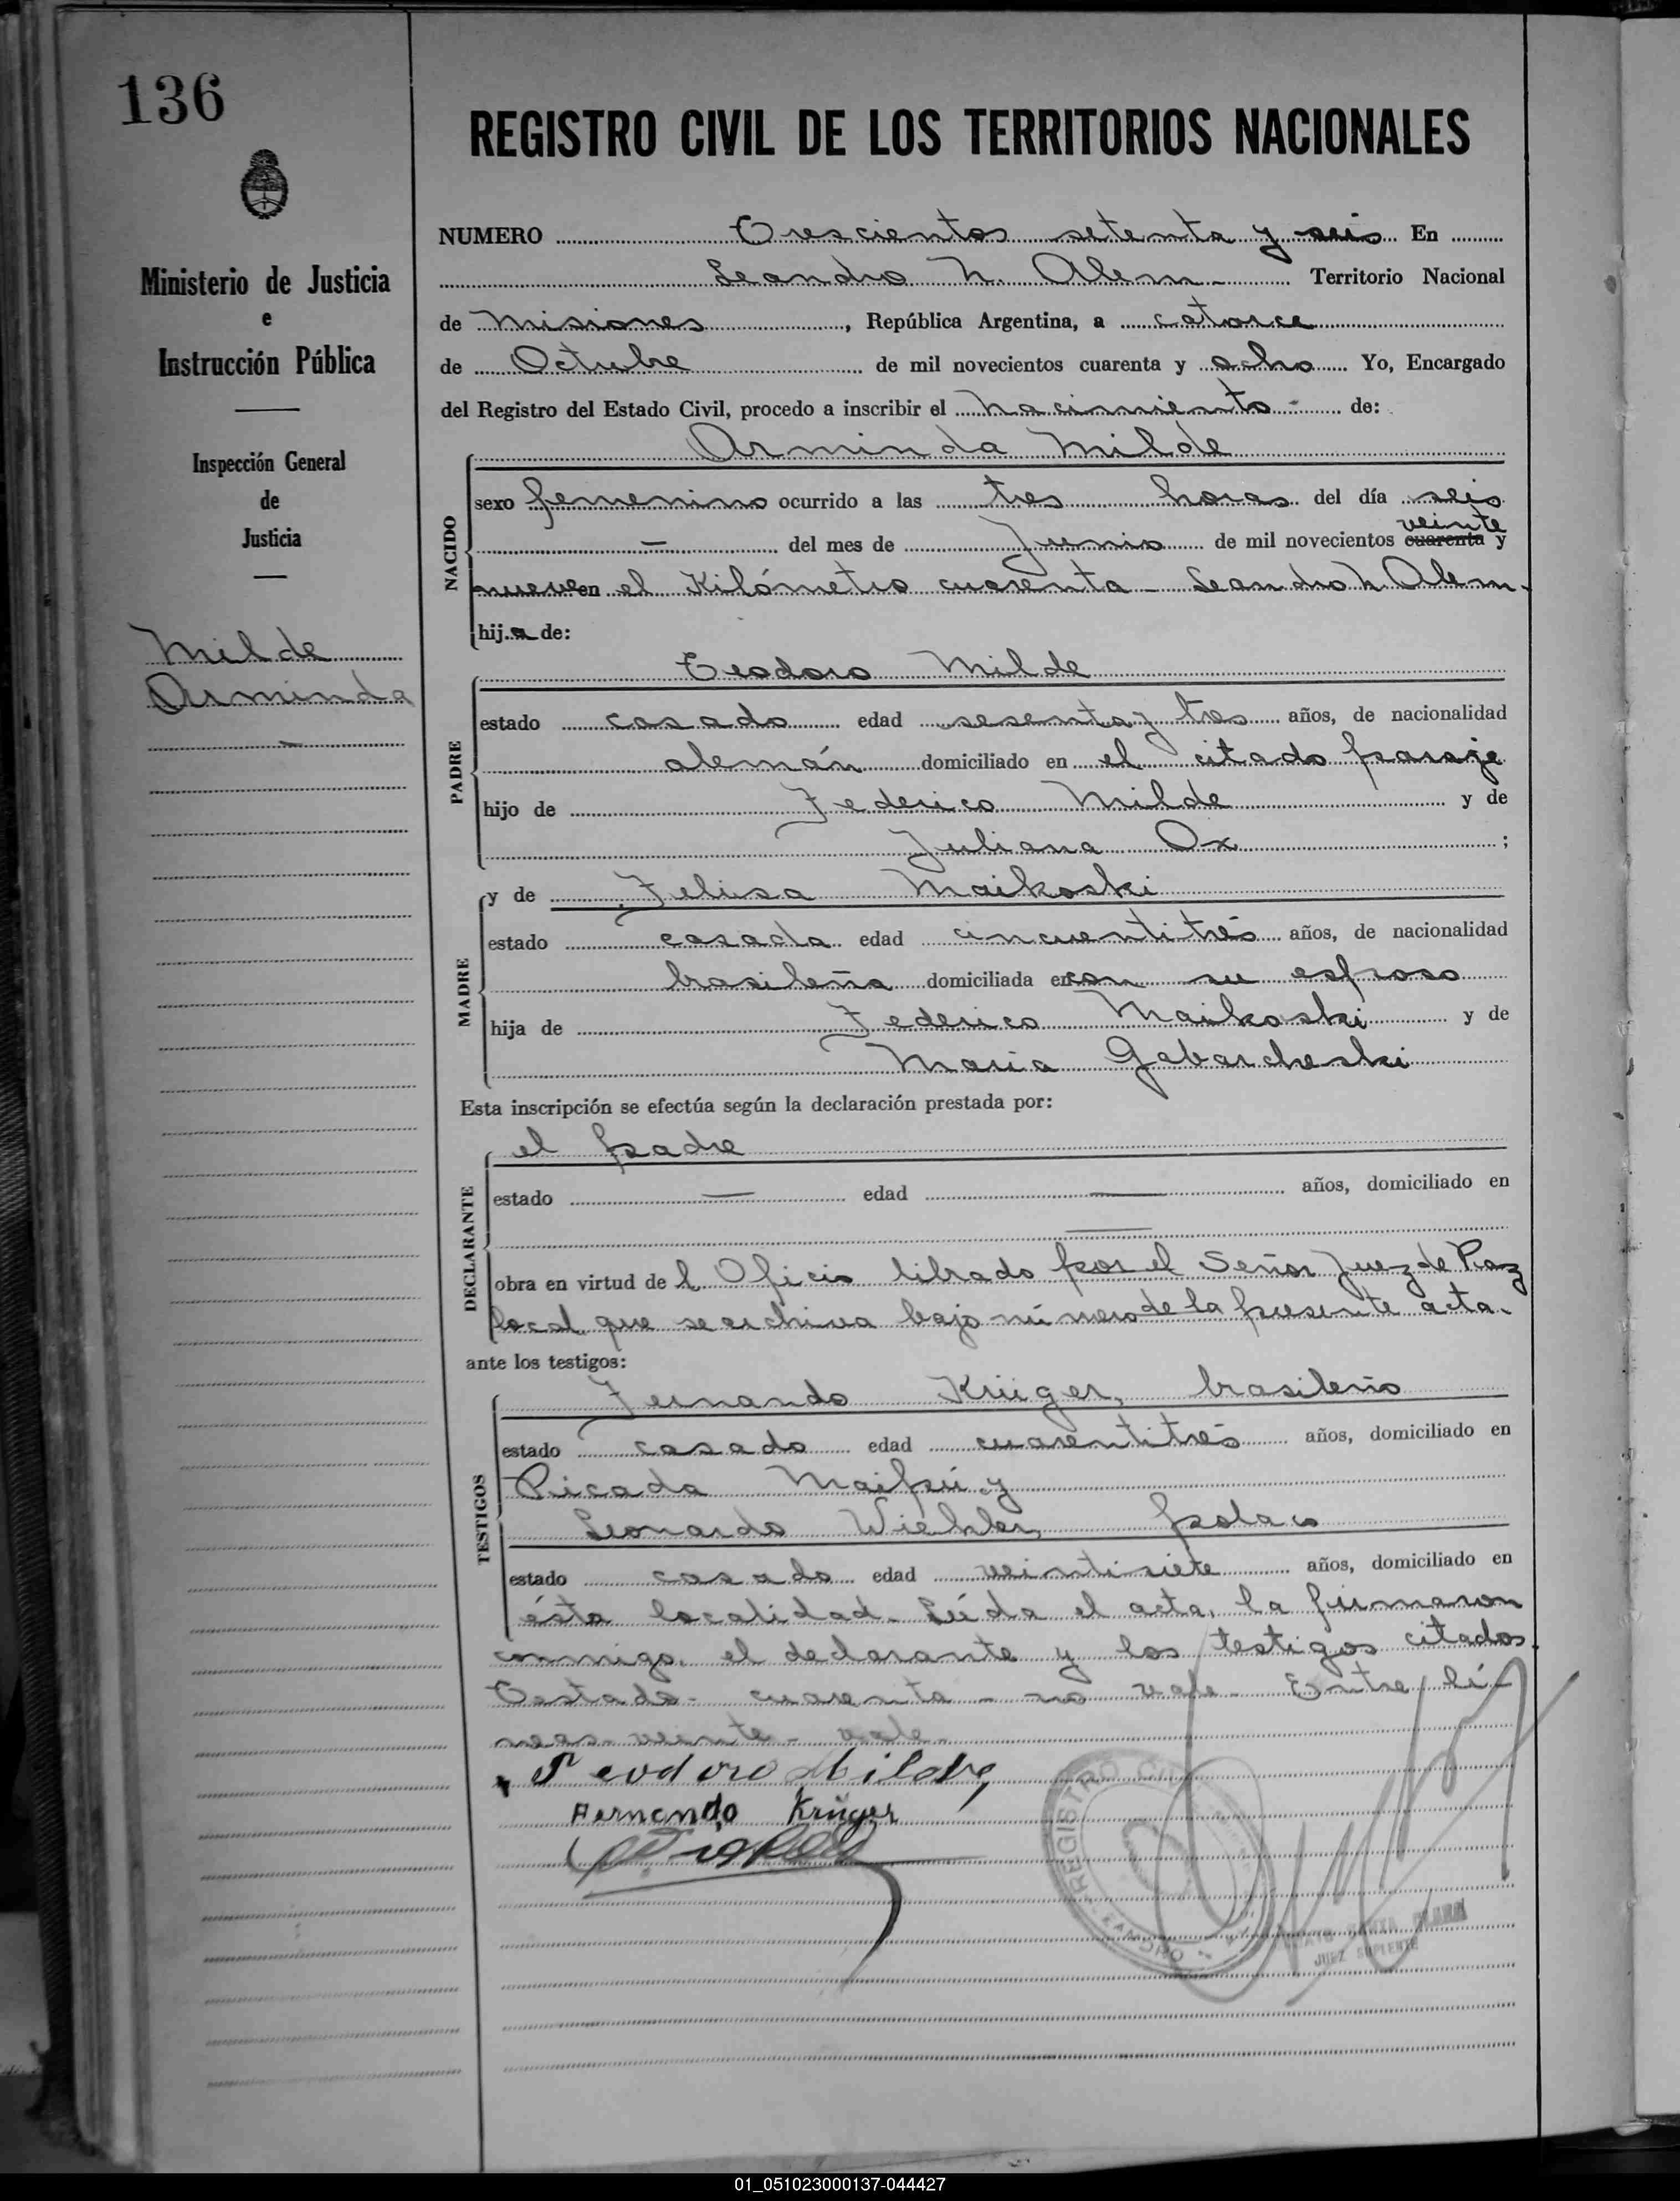 136
Ministerio de Justicia
e
Instrucción Pública
Inspección General
de
Justicia
Milde
Arminda
REGISTRO CIVIL DE LOS TERRITORIOS NACIONALES
NUMERO Trescientos setenta y seis En
Leandro N. Alem - Territorio Nacional
de Misiones, República Argentina, a catorce
de Octubre de mil novecientos cuarenta y ocho Yo, Encargado
del Registro del Estado Civil, procedo a inscribir el nacimiento - de:
Arminda Milde
NACIDO
sexo femenino ocurrido a las tres horas del día seis
veinte
- del mes de Junio de mil novecientos cuarenta y
nueve en el Kilómetro cuarenta - Leandro N. Alem.
hija de:
PADRE
Teodoro Milde
estado casado edad sesenta y tres años, de nacionalidad
alemán domiciliado en el citado paraje
hijo de Federico Milde y de
Juliana Ox ;
MADRE
y de Felisa Maikoski
estado casada edad cincuentitrés años, de nacionalidad
brasileña domiciliada en con su esposo
hija de Federico Maikoski y de
Maria Gabarcheski
Esta inscripción se efectúa según la declaración prestada por:
DECLARANTE
el padre
estado — edad — años, domiciliado en
—
obra en virtud del Oficio librado por el Señor Juez de Paz
local que se archiva bajo número de la presente acta.
ante los testigos:
TESTIGOS
Fernando Krüger, brasileño
estado casado edad cuarentitrés años, domiciliado en
Picada Maipú y
Leonardo Wiehler, polaco
estado casado edad veintisiete años, domiciliado en
ésta localidad. Leída el acta, la firmaron
conmigo, el declarante y los testigos citados.
Testado - cuarenta - no vale. Entre lí-
neas - veinte - vale.
Teodoro Milde
Fernando Krüger
REGISTRO CIVIL
LEANDRO N.
SANTA
JUEZ SUPLENTE
01_051023000137-044427